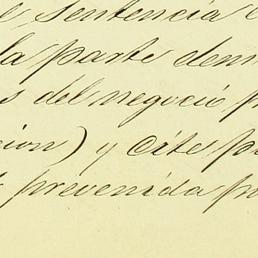 e, Sentencia
la parte dem
s del negocio p
cion) y Cite p
prevenida po